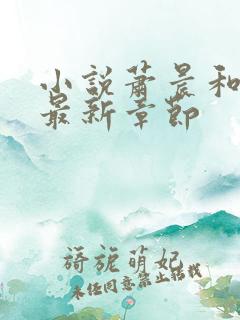 小说萧晨和
最新章节
旖旎萌妃
未经同意禁止转载